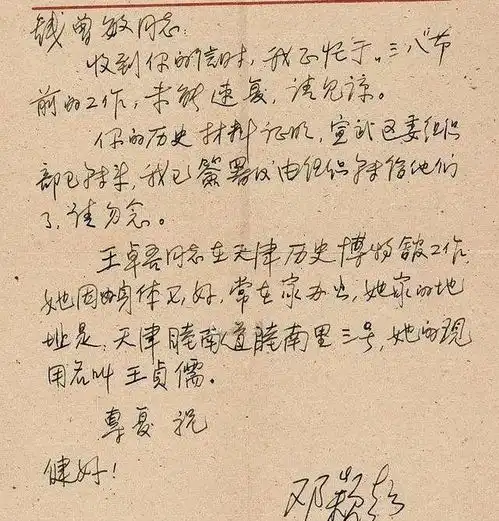 钱曾敏同志:
收到你的信时,我正忙于“三八”节
前的工作,未能速复,请见谅。
你的历史材料证明,宣武区委组织
部已转来,我已签署仍由组织转给他们
了,请勿念。
王卓吾同志在天津历史博物馆工作,
她因为身体不好,常在家办公,她家的地
址是,天津睦南道睦南里三号,她的现
用名叫王贞儒。
专复 祝
健好!
邓颖超